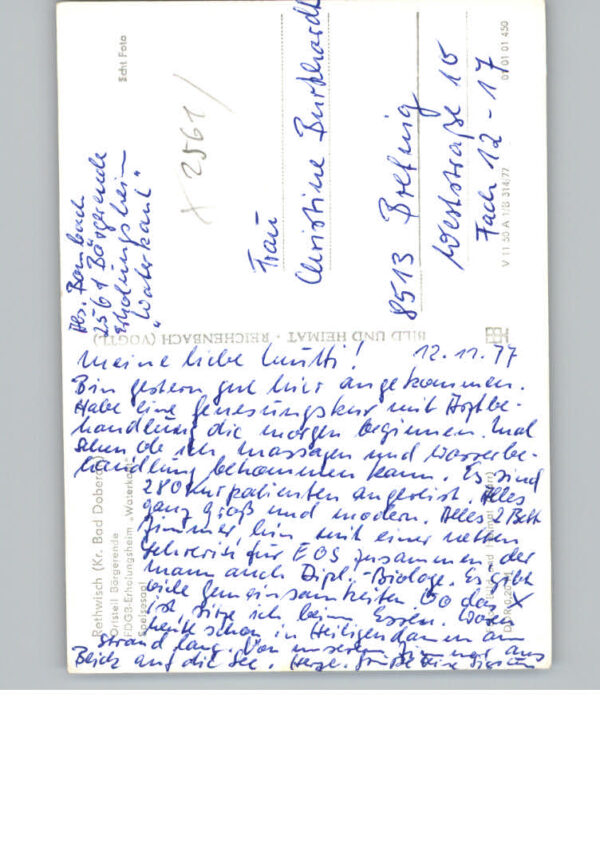 Echt Foto
Abs. Bombach
2561 Börgerende
Erholungsheim
"Waterkant"
x 2561/
Frau
Christine Burkhardt
8513 Bretnig
Weststraße 10
Fach 12-17
09 01 01 450
V 11 50 A 1/B 314/77
BILD UND HEIMAT · REICHENBACH (VOGTL)
Meine liebe Mutti! 12.11.77
Bin gestern gut hier angekommen.
Habe eine Genesungskur mit Arztbe-
handlung die morgen beginnen. Mal
sehen ob ich Massagen und Wasserbe-
handlung bekommen kann. Es sind
280 Kurpatienten angereist. Alles
ganz groß und modern. Alles 2 Bett
Zimmer, bin mit einer netten
Lehrerin für EOS zusammen der
Mann auch Dipl.-Biologe. Es gibt
viele Gemeinsamkeiten. Wo das X
ist sitze ich beim Essen. Waren
heute schon in Heiligendamm am
Strand lang. Von unserem Zimmer aus
Blick auf die See. Herzl. Grüße Deine
Rethwisch (Kr. Bad Doberan)
Ortsteil Börgerende
FDGB-Erholungsheim „Waterkant"
Speisesaal